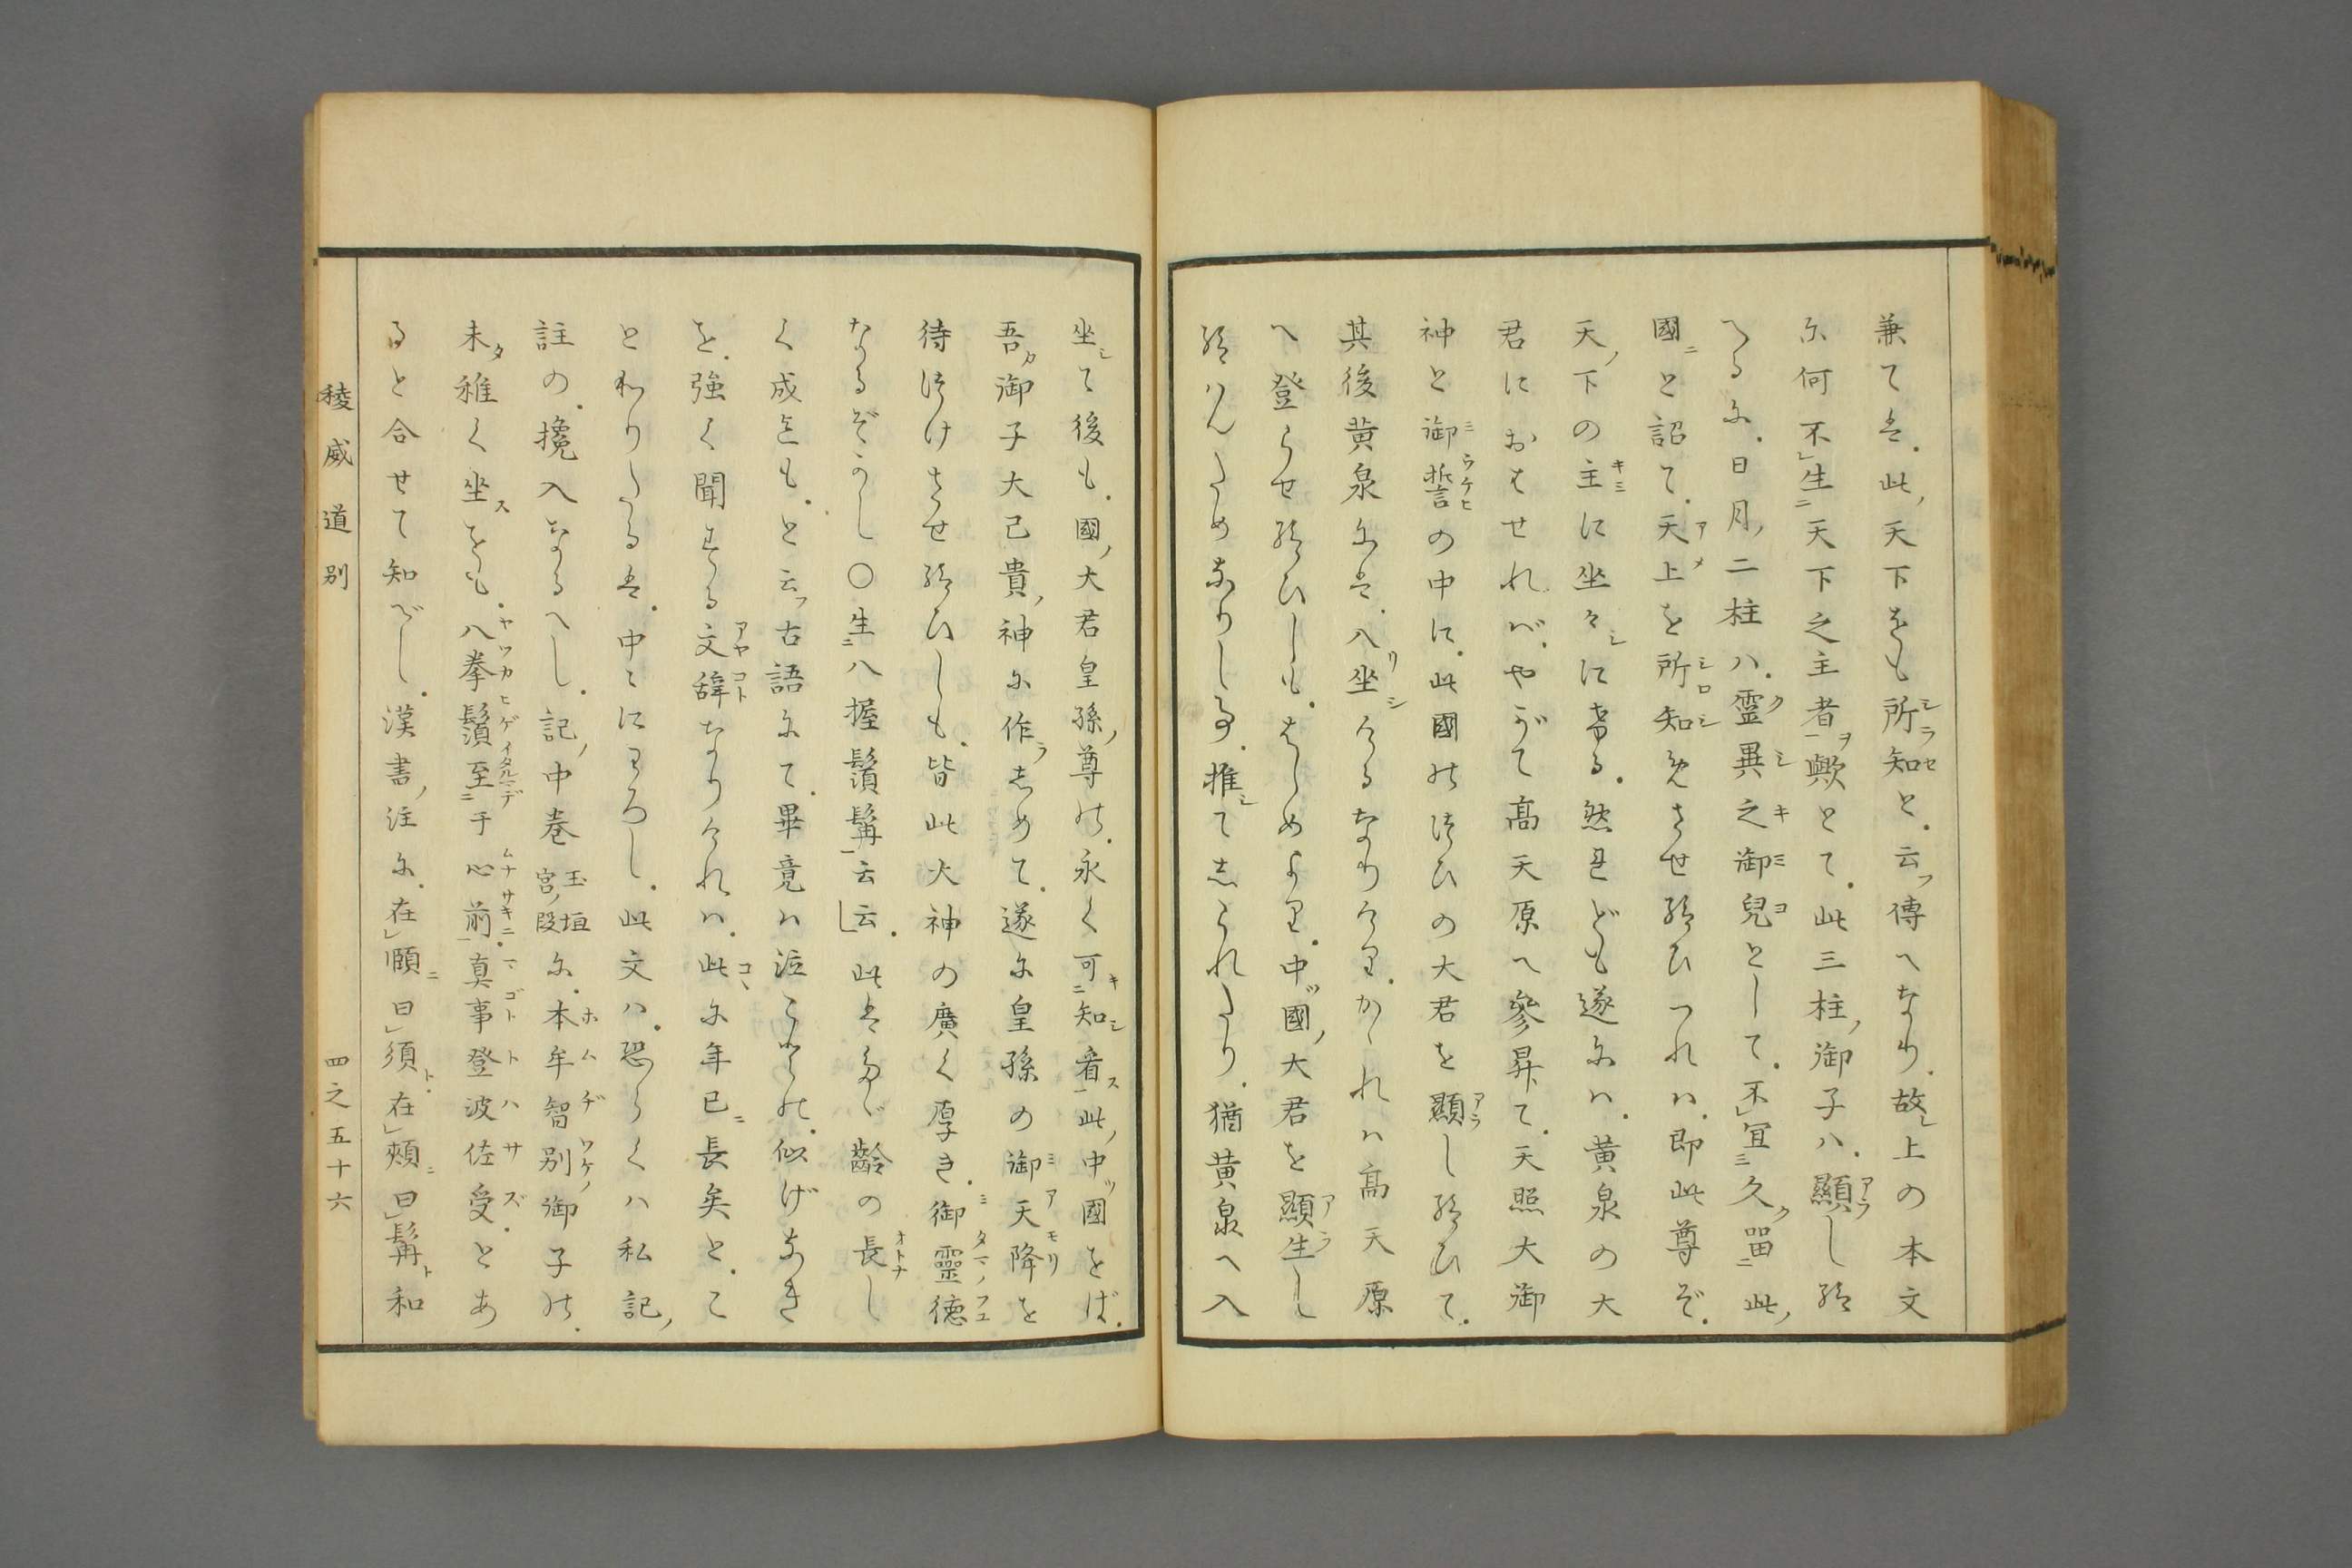 兼ては。此ノ天下をも所知と。云フ傳へなり。故レ上の本文
に何不生天下之主者歟とて。此三柱ノ御子ハ。顯し給
へるに。日月ノ二柱ハ。靈異之御兒として。不宜久留此ノ
國と詔て。天上を所知めさせ給ひつれハ。即此尊ぞ。
天ノ下の主に坐々に寿る。然れども遂にハ。黄泉の大
君におはせれバ。やがて高天原へ參昇て。天照大御
神と御誓の中に。此國のつひの大君を顯し給ひて。
其後黄泉には。入坐けるなりけり。かゝれハ高天原
へ登らせ給ひしも。はじめより。中ツ國ノ大君を顯生し
給はんためなりし事。推て志られたり。猶黄泉へ入
坐て後も。國ノ大君皇孫ノ尊の。永く可知看此ノ中ツ國をば。
吾カ御子大己貴ノ神に作らしめて。遂に皇孫の御天降を
待つけさせ給ひしも。皆此大神の廣く厚き。御靈徳
なるぞかし〇生八握鬚髯云云。此はたゞ齡の長し
く成とも。と云フ古語にて。畢竟ハ泣こと の。似げなき
を。強く聞する文辞なりけれハ。此に年已長矣と。こ
とわりたるは。中々にわろし。此文ハ。恐らくハ私記ノ
註の。攙入なるへし。記ノ中巻玉垣宮ノ段に。本牟智別ノ御子の。
未タ稚く坐をも。八拳鬚至于心前。真事登波佐受。とあ
ると合せて知べし。漢書ノ注に。在頤曰須ト。在頰曰髯ト和
稜威道別
四之五十六